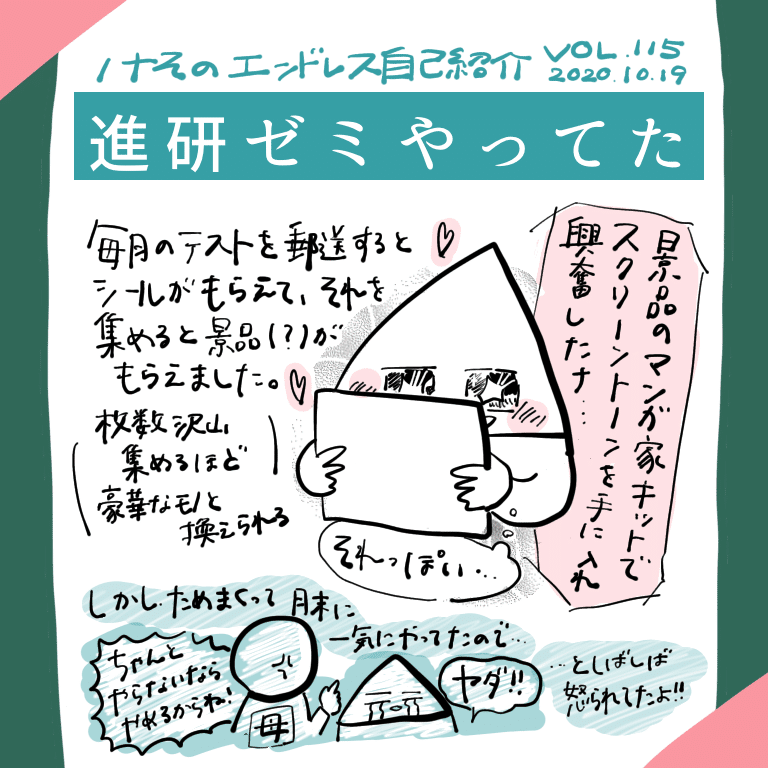 ハナそのエンドレス自己紹介 VOL.115
2020.10.19
進研ゼミやってた
毎月のテストを郵送すると
シールがもらえて、それを
集めると景品(?)が
もらえました。
枚数沢山
集めるほど
豪華なモノと
換えられる
景品のマンガ家キットで
スクリーントーンを手に入れ
興奮したナ…
それっぽい…
しかし、ためまくって月末に
一気にやってたので…
ちゃんと
やらないなら
やめるからね!
母
ヤダ!!
…としばしば
怒られてたよ!!